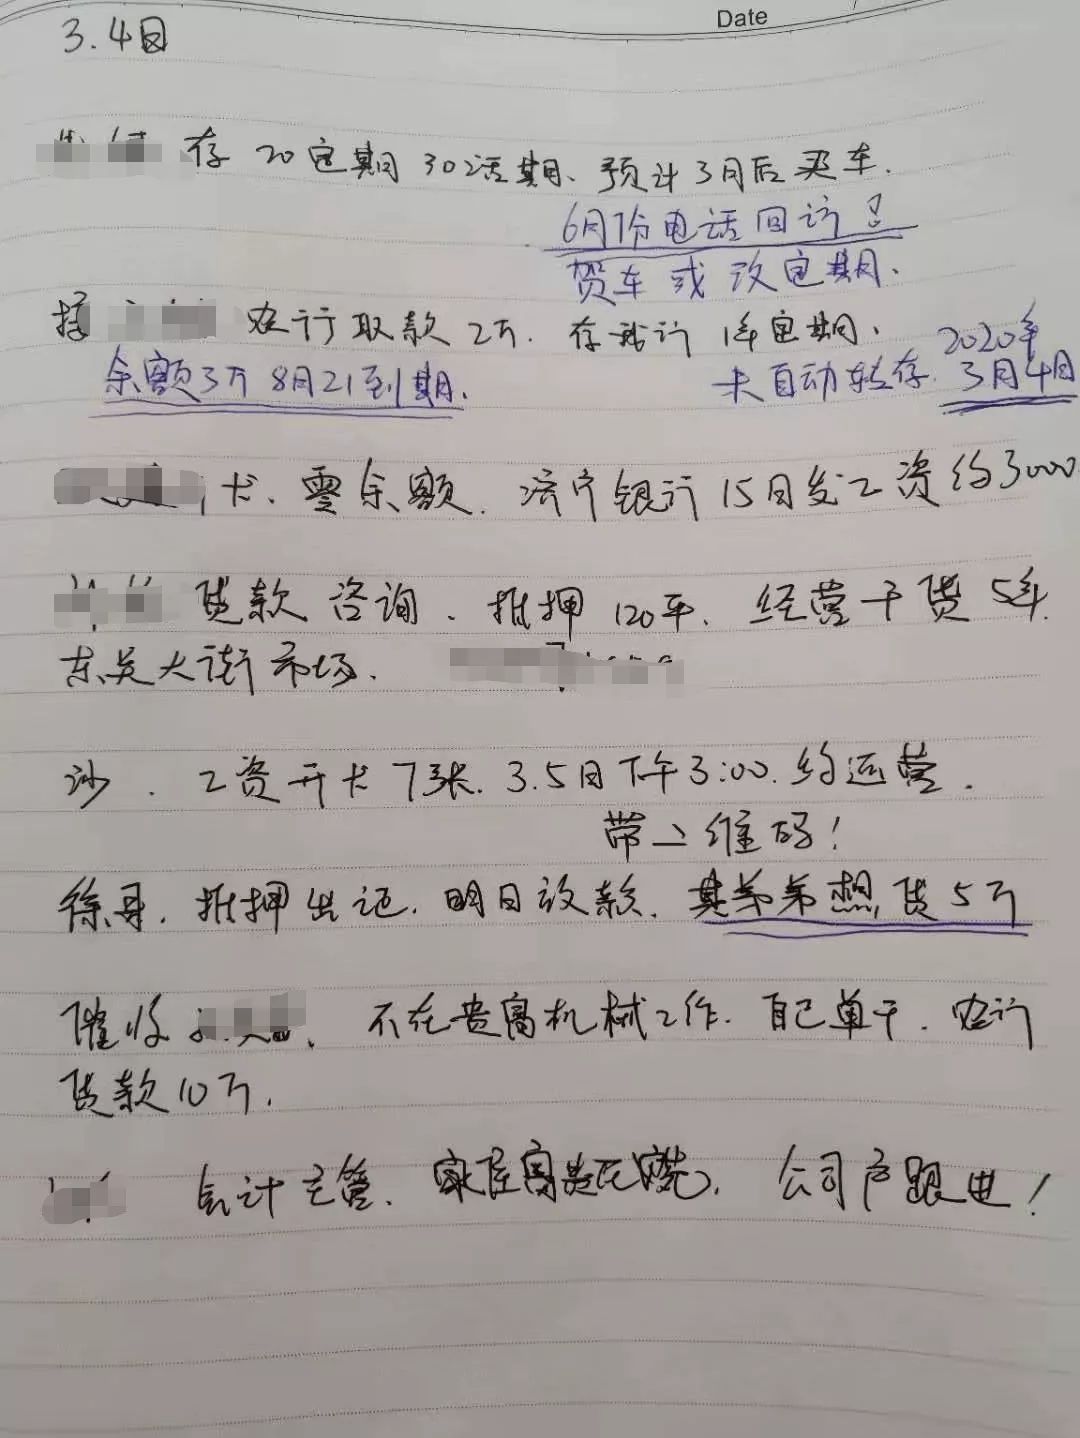 Date
3.4日
存 20定期 30活期、预计3月后买车.
6月份电话回访!
贺车或改定期.
农行取款2万. 存我行 1年定期、
2020年
余额3万 8月21到期.
卡自动转存. 3月4日
卡、零余额. 济宁银行15日发工资约3000
贷款咨询、抵押120平. 经营干货5年.
东关大街市场.
沙. 工资开卡7张. 3.5日下午3:00. 约运营.
带二维码!
徐丹. 抵押出证. 明日放款. 其弟弟想贷5万
催收 、不在贵富机械工作. 自己单干. 农行
贷款10万.
会计主管. 公司户跟进!